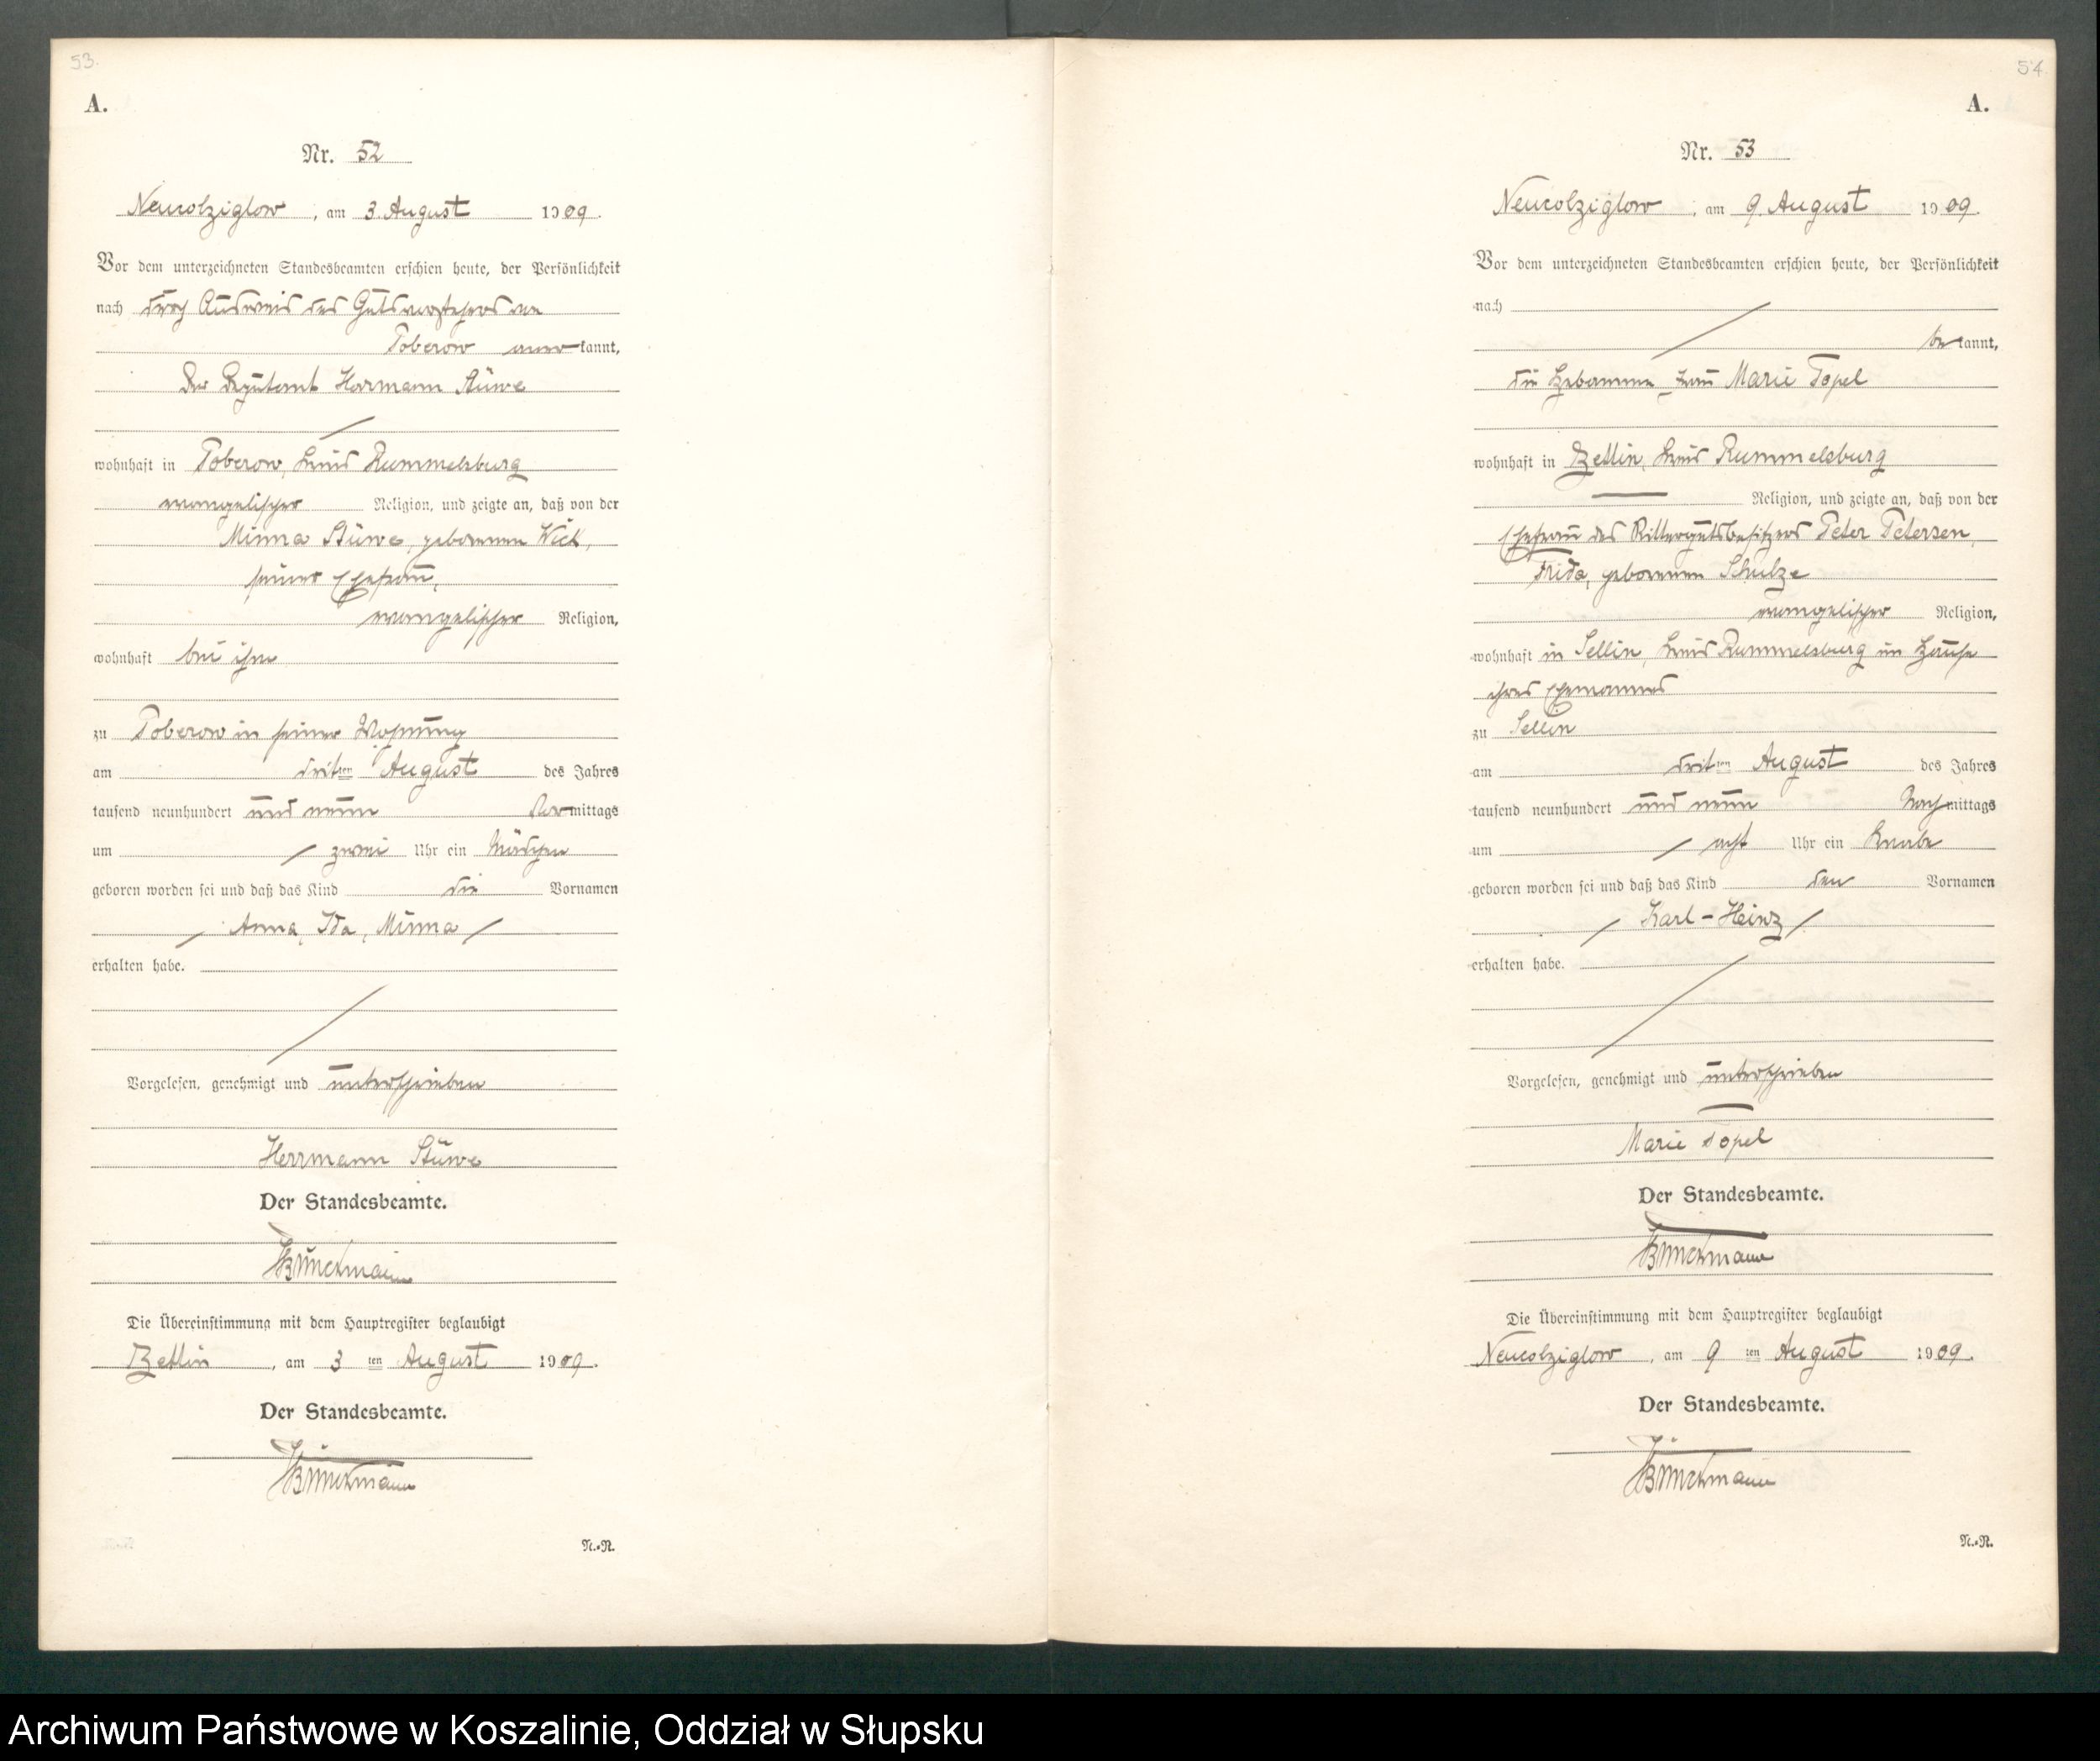 53.
A.
Nr. 52
Neucolziglow, am 3. August 1909.
Vor dem unterzeichneten Standesbeamten erschien heute, der Persönlichkeit
nach durch Ausweis des Gutsvorstehers von
Toberow anerkannt,
der Deputant Hermann Stüwe
wohnhaft in Toberow, Kreis Rummelsburg
evangelischer Religion, und zeigte an, daß von der
Minna Stüwe, geborenen Wick,
seiner Ehefrau,
evangelischer Religion,
wohnhaft bei ihm
zu Toberow in seiner Wohnung
am dritten August des Jahres
tausend neunhundert und neun Vormittags
um zwei Uhr ein Mädchen
geboren worden sei und daß das Kind die Vornamen
Anna, Ida, Minna
erhalten habe.
Vorgelesen, genehmigt und unterschrieben
Herrmann Stüwe
Der Standesbeamte.
Die Übereinstimmung mit dem Hauptregister beglaubigt
Zettin, am 3 ten August 1909.
Der Standesbeamte.
N.-N.
54
A.
Nr. 53
Neucolziglow, am 9. August 1909.
Vor dem unterzeichneten Standesbeamten erschien heute, der Persönlichkeit
nach
bekannt,
die Hebamme Frau Marie Topel
wohnhaft in Zettin, Kreis Rummelsburg
Religion, und zeigte an, daß von der
Ehefrau des Rittergutsbesitzers Peter Petersen,
Frida, geborenen Schulze
evangelischer Religion,
wohnhaft in Sellin, Kreis Rummelsburg im Hause
ihres Ehemannes
zu Sellin
am dritten August des Jahres
tausend neunhundert und neun Nachmittags
um acht Uhr ein Knabe
geboren worden sei und daß das Kind den Vornamen
Karl-Heinz
erhalten habe.
Vorgelesen, genehmigt und unterschrieben
Marie Topel
Der Standesbeamte.
Die Übereinstimmung mit dem Hauptregister beglaubigt
Neucolziglow, am 9 ten August 1909.
Der Standesbeamte.
N.-N.
Archiwum Państwowe w Koszalinie, Oddział w Słupsku